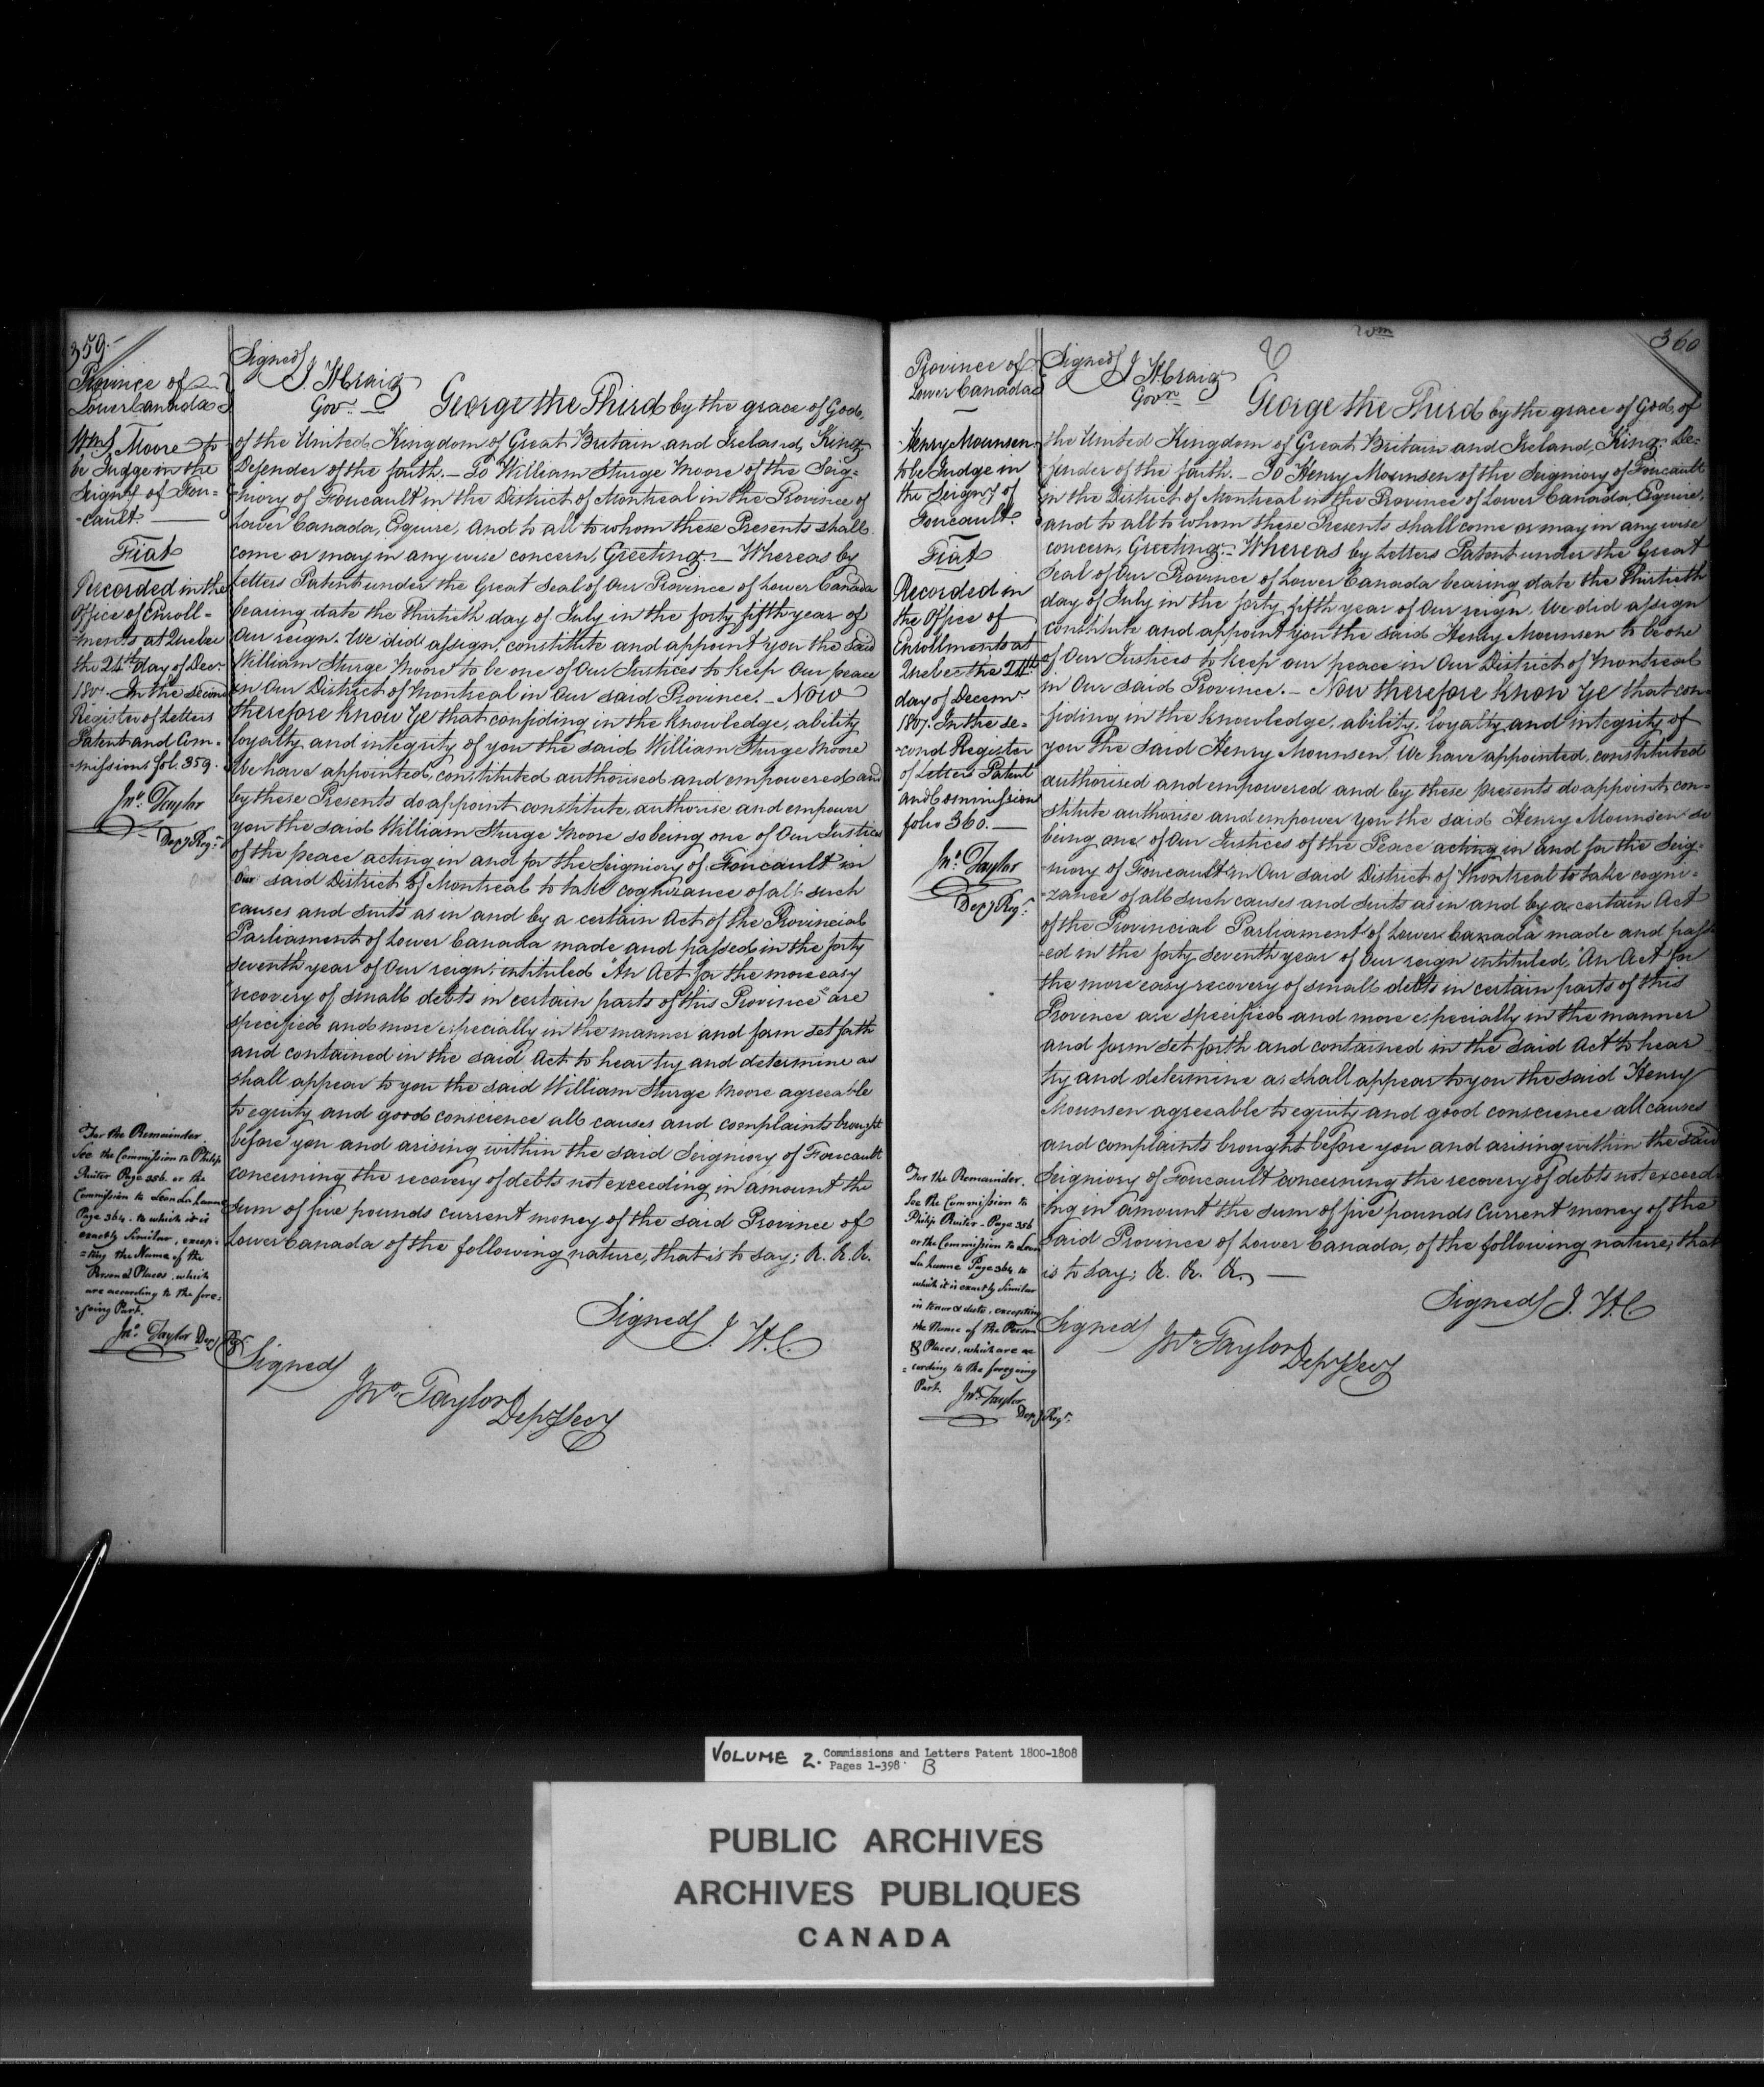 359.
Province of
Lower Canada
Wm. S. Moore to
be Judge in the
Seigny of Fou=
=cault.
Fiat
Recorded in the
Office of Enroll=
=ments at Quebec
the 24th day of Decr.
1807. In the second
Register of Letters
Patent and Com=
=missions fol. 359.
Jno. Taylor
Depy Regr.
For the Remainder
See the Commission to Philip
Ruiter Page 356. or the
Commission to Leon Lalanne
Page 364. to which it is
exactly Similar, excep=
=ting the Name of the
Person & Places, which
are according to the fore=
=going Part.
Jno. Taylor Depy Regr.
Signed J. H Craig
Govr.
George the Third by the grace of God,
of the United Kingdom of Great Britain and Ireland, King
Defender of the faith. - To William Sturge Moore of the Seig=
=niory of Foucault in the District of Montreal in the Province of
Lower Canada, Esquire, and to all to whom these Presents shall
come or may in any wise concern, Greeting. - Whereas by
Letters Patent under the Great Seal of Our Province of Lower Canada
bearing date the Thirtieth day of July in the forty fifth year of
Our reign. We did assign, constitute and appoint you the said
William Sturge Moore to be one of Our Justices to keep Our peace
in Our District of Montreal in Our said Province. - Now
therefore know Ye that confiding in the knowledge, ability
loyalty and integrity of you the said William Sturge Moore
We have appointed, constituted authorised and empowered and
by these Presents do appoint constitute, authorise and empower
you the said William Sturge Moore so being one of Our Justices
of the peace acting in and for the Seigniory of Foucault in
Our said District of Montreal to take cognizance of all such
causes and suits as in and by a certain Act of the Provincial
Parliament of Lower Canada made and passed in the forty
seventh year of Our reign, intituled "An Act for the more easy
"recovery of small debts in certain parts of this Province" are
specified and more especially in the manner and form set forth
and contained in the said Act to hear try and determine as
shall appear to you the said William Sturge Moore agreeable
to equity and good conscience all causes and complaints brought
before you and arising within the said Seigniory of Foucault
concerning the recovery of debts not exceeding in amount the
sum of five pounds current money of the said Province of
Lower Canada of the following nature, that is to say; &. &. &.
Signed J. H. C.
Signed
Jno. Taylor
Depy Secy
wm
360
Province of
Lower Canada
Henry Mounsen
to be Judge in
the Seigny of
Foucault.
Fiat
Recorded in
the Office of
Enrollments at
Quebec the 24th
day of Decemr.
1807. In the se=
=cond Register
of Letters Patent
and Commissions
folio 360.
Jno. Taylor
Depy Regr.
For the Remainder.
See the Commission to
Philip Ruiter. Page 356
or the Commission to Leon
Lalanne Page 364. to
which it is exactly Similar
in tenor & date, excepting
the Name of the Person
& Places, which are ac
=cording to the foregoing
Part. Jno. Taylor
Depy Regr.
Signed J. H Craig
Govr.
George the Third by the grace of God, of
the United Kingdom of Great Britain and Ireland, King. De=
=fender of the faith. - To Henry Mounsen of the Seigniory of Foucault
in the District of Montreal in the Province of Lower Canada Esquire,
and to all to whom these Presents shall come or may in any wise
concern, Greeting. - Whereas by Letters Patent under the Great
Seal of Our Province of Lower Canada bearing date the Thirtieth
day of July in the forty fifth year of Our reign. We did assign
constitute and appoint you the said Henry Mounsen to be one
of Our Justices to keep our peace in Our District of Montreal
in Our said Province. - Now therefore know Ye that con=
fiding in the knowledge, ability, loyalty and integrity of
you the said Henry Mounsen, We have appointed, constituted
authorised and empowered and by these presents do appoint, con=
stitute authorise and empower you the said Henry Mounsen so
being one of Our Justices of the Peace acting in and for the Seig=
=niory of Foucault in Our said District of Montreal to take cogni=
=zance of all such causes and suits as in and by a certain Act
of the Provincial Parliament of Lower Canada made and pass=
=ed in the forty seventh year of Our reign intituled, "An Act for
the more easy recovery of small debts in certain parts of this
Province are specified and more especially in the manner
and form set forth and contained in the said Act to hear
try and determine as shall appear to you the said Henry
Mounsen agreeable to equity and good conscience all causes
and complaints brought before you and arising within the said
Seigniory of Foucault concerning the recovery of debts not exceed=
ing in amount the sum of five pounds Current money of the
said Province of Lower Canada, of the following nature, that
is to say; &. &. &.
Signed J. H. C
Signed
Jno Taylor
Depy Secy
VOLUME 2. Commissions and Letters Patent 1800-1808
Pages 1-398 B
PUBLIC ARCHIVES
ARCHIVES PUBLIQUES
CANADA